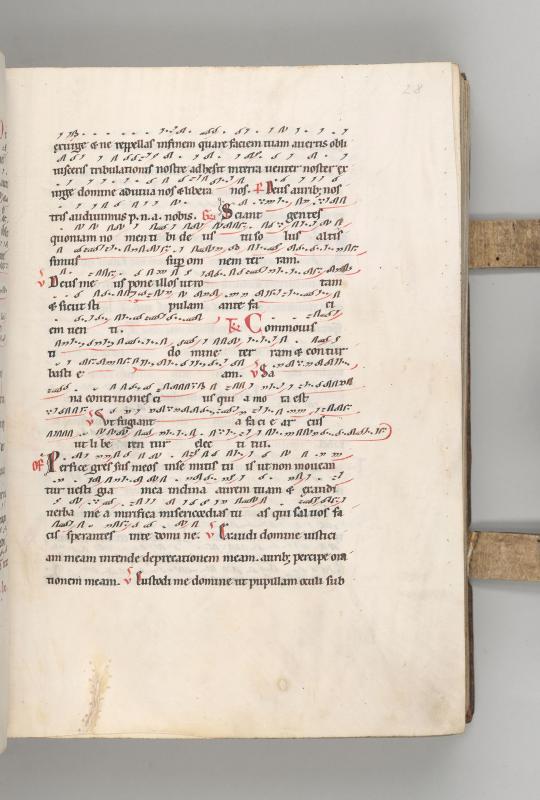 28
exurge & ne repellas infinem quare faciem tuam avertis obli
visceris tribulationis nostre adhesit interra venter noster ex
urge domine adiuva nos & libera nos. Ps Deus aurib; nos
tris audivimus p.n.a. nobis. Gr Sciant gentes
quoniam no men ti bi de us tu so lus altis
simus sup om nem ter ram.
V Deus me us pone illos ut ro tam
& sicut sti pulam ante fa ci
em ven ti. Tr Commovis
ti do mine ter ram & contur
basti e am. V Sa
na contritiones ei us qui a mo ta est
V Ut fugiant a fa ci e ar cus
ut li be ren tur elec ti tui.
Of Perfice gres sus meos inse mitis tu is ut non movean
tur vesti gia mea inclina aurem tuam & exaudi
verba me a mirifica misericordias tu as qui sal vos fa
cis sperantes inte domi ne. V Exaudi domine iustici
am meam intende deprecationem meam. aurib; percipe ora
tionem meam. V Custodi me domine ut pupillam oculi sub